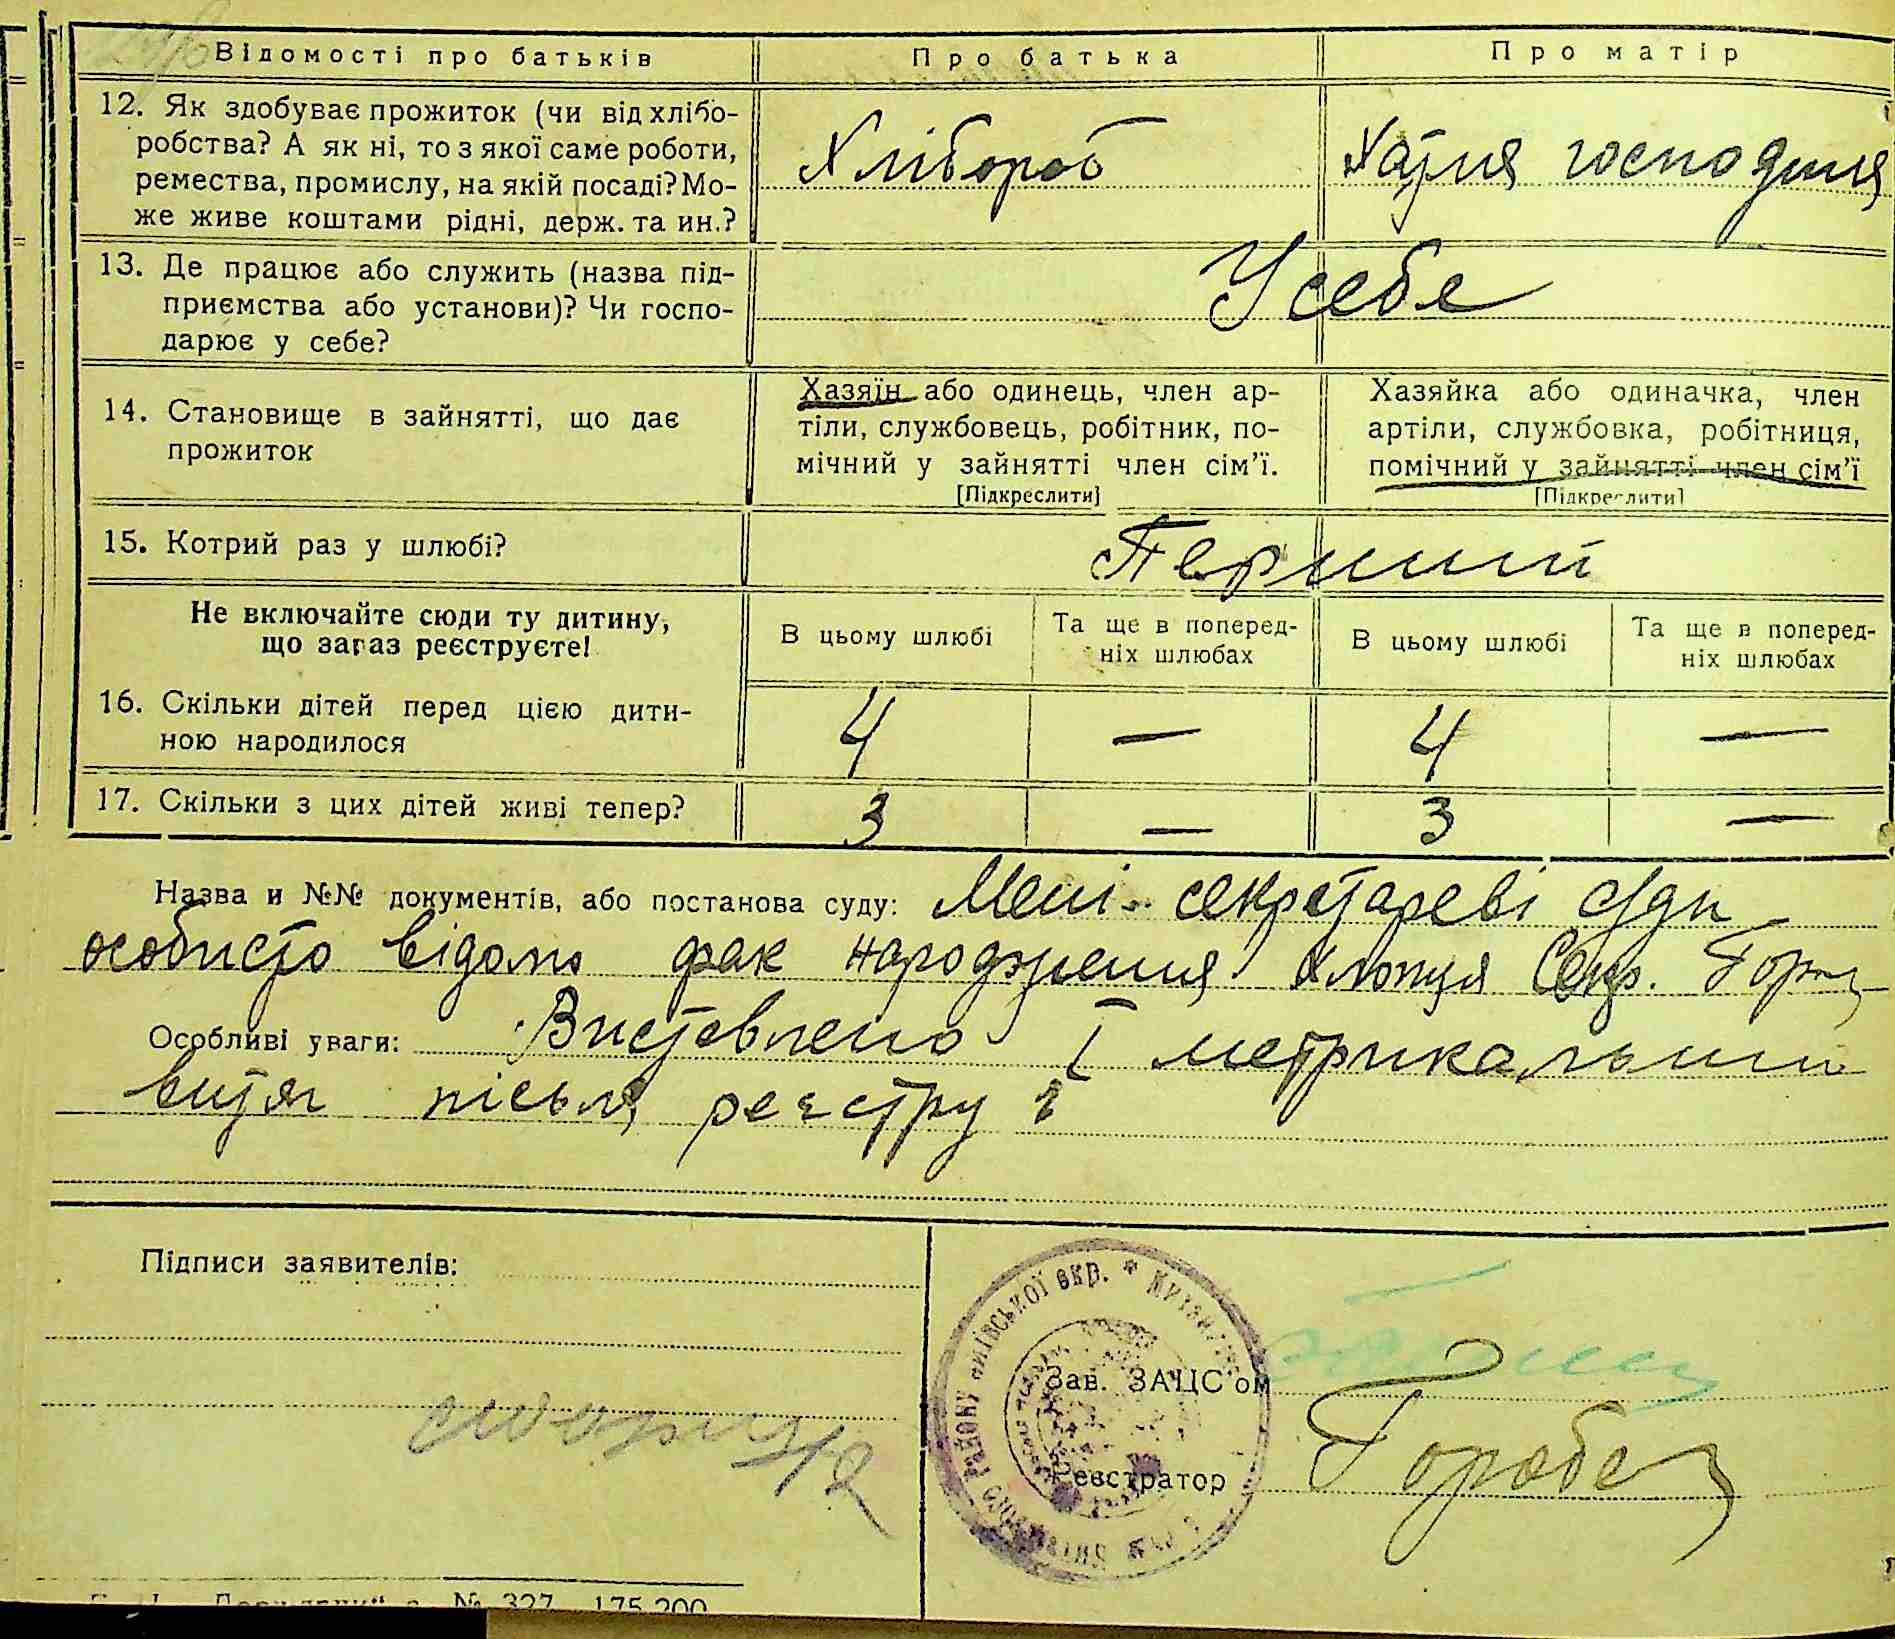 Відомості про батьків
Про батька
Про матір
12. Як здобуває прожиток (чи від хлібо-
робства? А як ні, то з якої саме роботи,
ремества, промислу, на якій посаді? Мо-
же живе коштами рідні, держ. та ин.?
Хлібороб
Хатня господиня
13. Де працює або служить (назва під-
приємства або установи)? Чи госпо-
дарює у себе?
У себе
14. Становище в зайнятті, що дає
прожиток
Хазяїн або одинець, член ар-
тіли, службовець, робітник, по-
мічний у зайнятті член сім'ї.
[Підкреслити]
Хазяйка або одиначка, член
артіли, службовка, робітниця,
помічний у зайнятті член сім'ї
[Підкреслити]
15. Котрий раз у шлюбі?
Перший
Не включайте сюди ту дитину,
що зараз реєструєте!
В цьому шлюбі
Та ще в поперед-
ніх шлюбах
В цьому шлюбі
Та ще в поперед-
ніх шлюбах
16. Скільки дітей перед цією дити-
ною народилося
4 — 4 —
17. Скільки з цих дітей живі тепер?
3 — 3 —
Назва и №№ документів, або постанова суду: Мені секретареві с/ради
особисто відомо фак народження хлопця Секр.
Особливі уваги: Виставлено І метрикальний
витяг після реєстру
Підписи заявителів:
Району Київської окр. *
Зав. ЗАЦС'ом
Реєстратор Горобец
№ 327 175.200